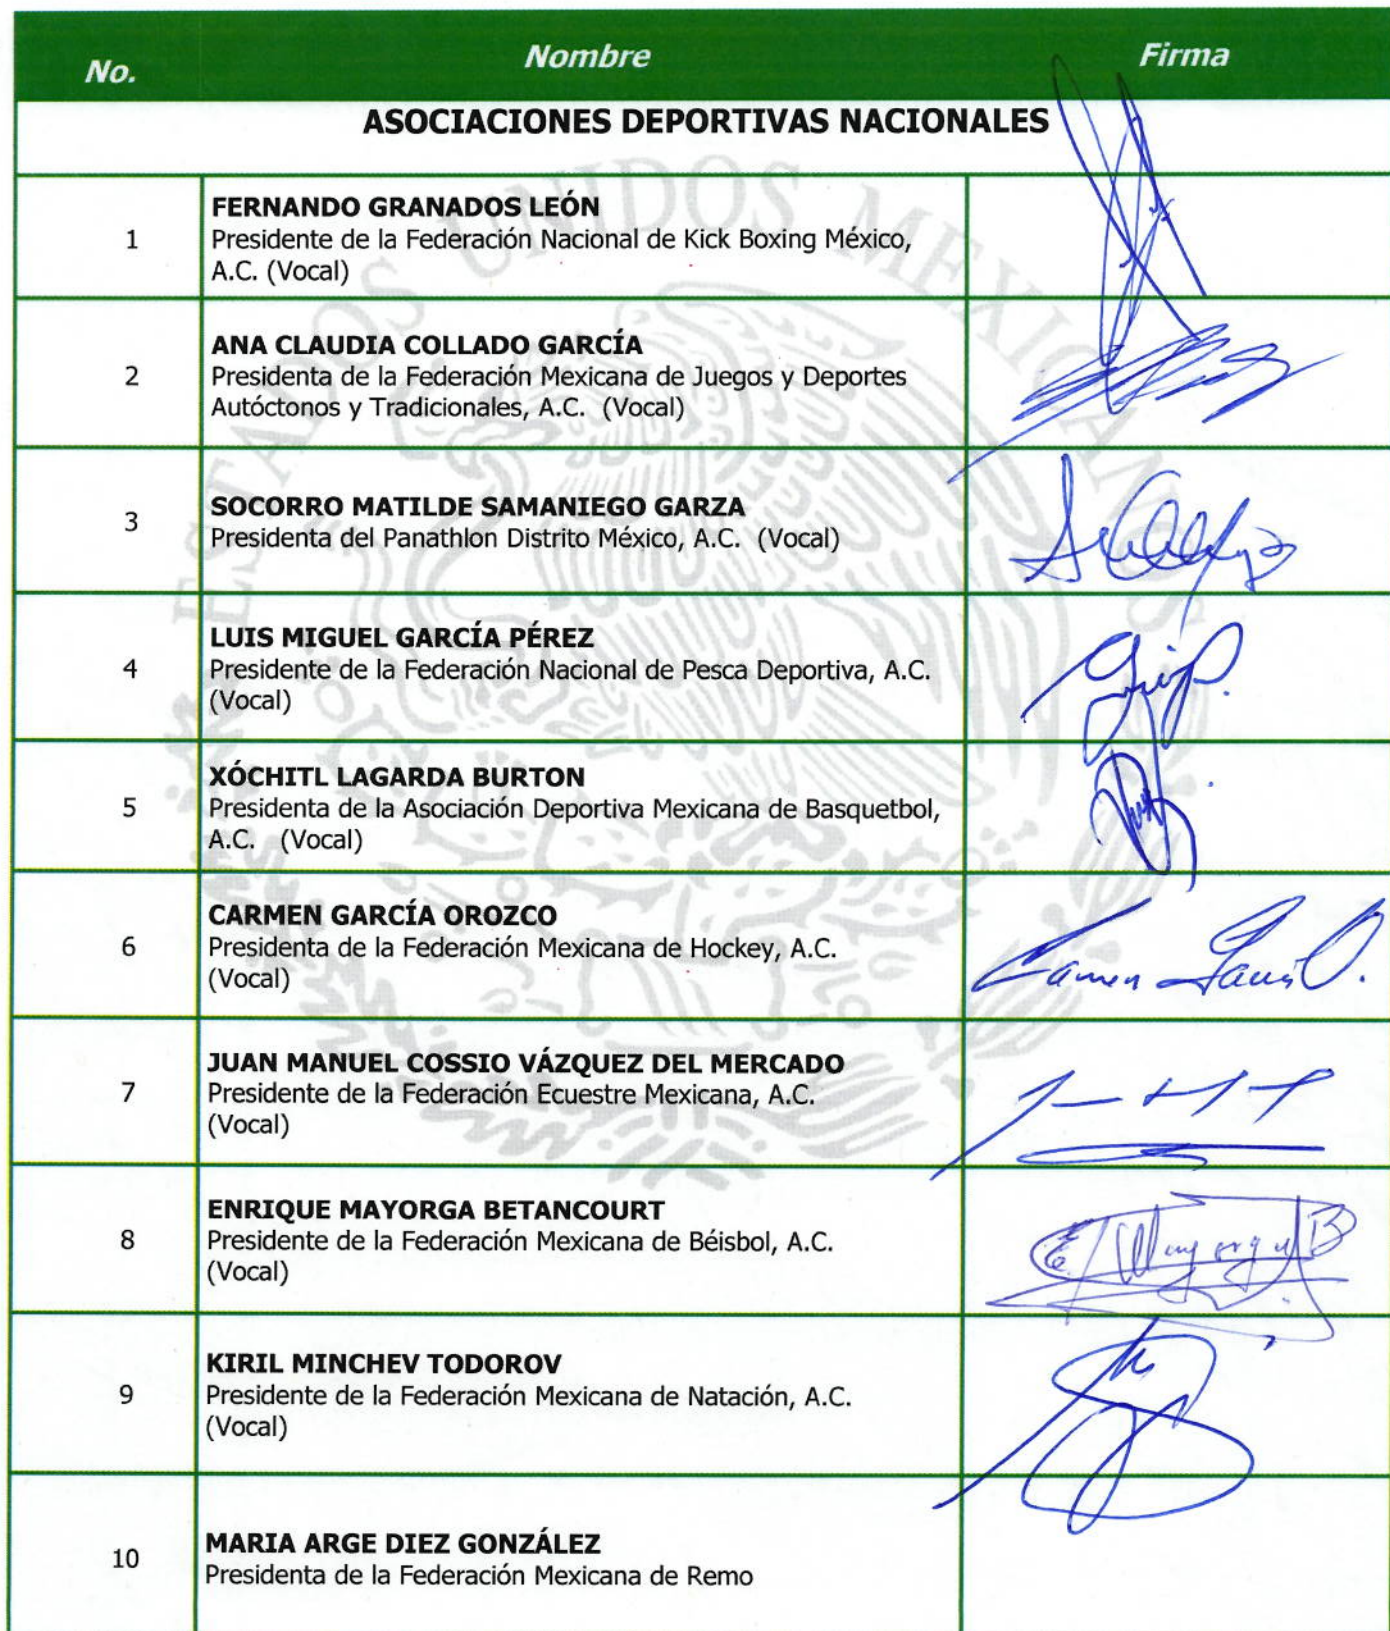 No. Nombre Firma
ASOCIACIONES DEPORTIVAS NACIONALES
ESTADOS UNIDOS MEXICANOS
1
FERNANDO GRANADOS LEÓN
Presidente de la Federación Nacional de Kick Boxing México,
A.C. (Vocal)
2
ANA CLAUDIA COLLADO GARCÍA
Presidenta de la Federación Mexicana de Juegos y Deportes
Autóctonos y Tradicionales, A.C. (Vocal)
3
SOCORRO MATILDE SAMANIEGO GARZA
Presidenta del Panathlon Distrito México, A.C. (Vocal)
4
LUIS MIGUEL GARCÍA PÉREZ
Presidente de la Federación Nacional de Pesca Deportiva, A.C.
(Vocal)
5
XÓCHITL LAGARDA BURTON
Presidenta de la Asociación Deportiva Mexicana de Basquetbol,
A.C. (Vocal)
6
CARMEN GARCÍA OROZCO
Presidenta de la Federación Mexicana de Hockey, A.C.
(Vocal)
7
JUAN MANUEL COSSIO VÁZQUEZ DEL MERCADO
Presidente de la Federación Ecuestre Mexicana, A.C.
(Vocal)
8
ENRIQUE MAYORGA BETANCOURT
Presidente de la Federación Mexicana de Béisbol, A.C.
(Vocal)
9
KIRIL MINCHEV TODOROV
Presidente de la Federación Mexicana de Natación, A.C.
(Vocal)
10
MARIA ARGE DIEZ GONZÁLEZ
Presidenta de la Federación Mexicana de Remo